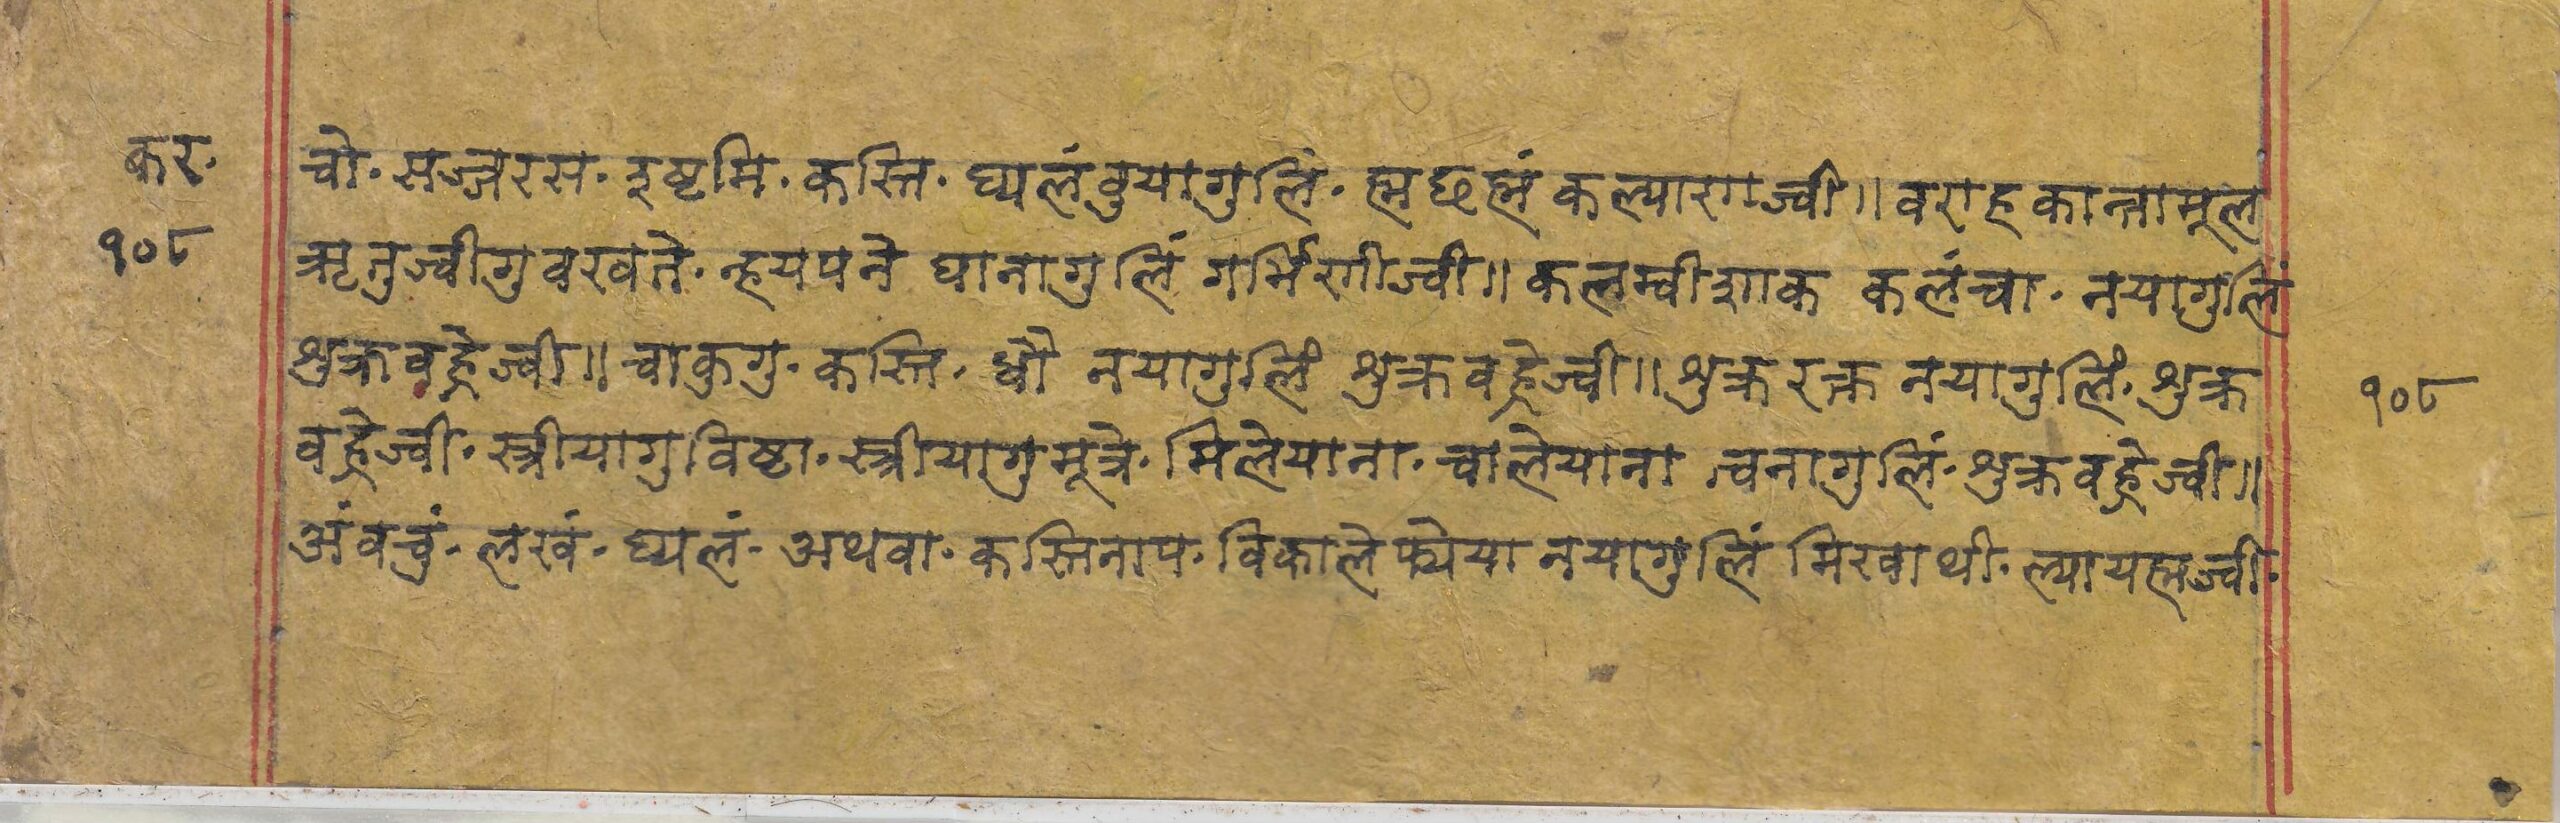 कर· चो· सर्ज्जरस· इष्टमि· कस्ति· घ्यलंवुयागुलिं· ह्मछह्मं कल्याराज्वी॥ वराहकान्तामूल
१०८ ऋतुज्वीगु वखते· न्हयपने घानागुलिं गर्भिणीज्वी॥ कलम्वीशाक कलंचा· नयागुलिं
शुक्रवह्रेज्वी॥ चाकुगु· कस्ति· ध्वौ नयागुलिं शुक्रवह्रेज्वी॥ शुक्र रक्त नयागुलिं· शुक्र १०८
वह्रेज्वी· स्त्रीयागु विष्टा· स्त्रीयागु मूत्रे· मिलेयाना· चालेयाना त्वनागुलिं· शुक्रवह्रेज्वी॥
अंवचुं· लखं· घ्यलं· अथवा· कस्तिनाप· विकालेफ्येया नयागुलिं मिखाथी· ल्यायह्मज्वी·